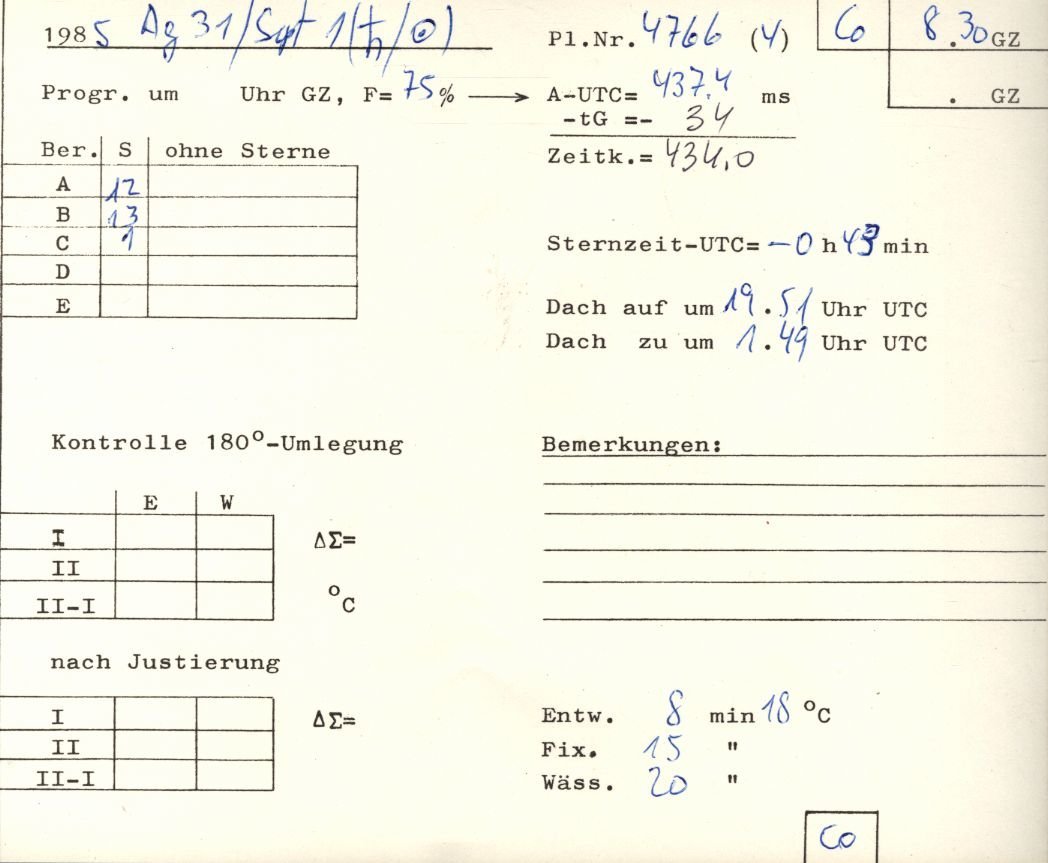 1985 Ag 31/Sept 1 (♄/☉)
Pl.Nr. 4766 (4) Co 8.30 GZ
Progr. um Uhr GZ, F= 75% → A-UTC= 437.4 ms . GZ
-tG =- 34
Zeitk.= 434,0
Ber. S ohne Sterne
A 12
B 13
C 1
D
E
Sternzeit-UTC= -0 h 43 min
Dach auf um 19.51 Uhr UTC
Dach zu um 1.49 Uhr UTC
Kontrolle 180°-Umlegung
E W
I ΔΣ=
II
II-I °C
nach Justierung
I ΔΣ=
II
II-I
Bemerkungen:
Entw. 8 min 18 °C
Fix. 15 "
Wäss. 20 "
Co